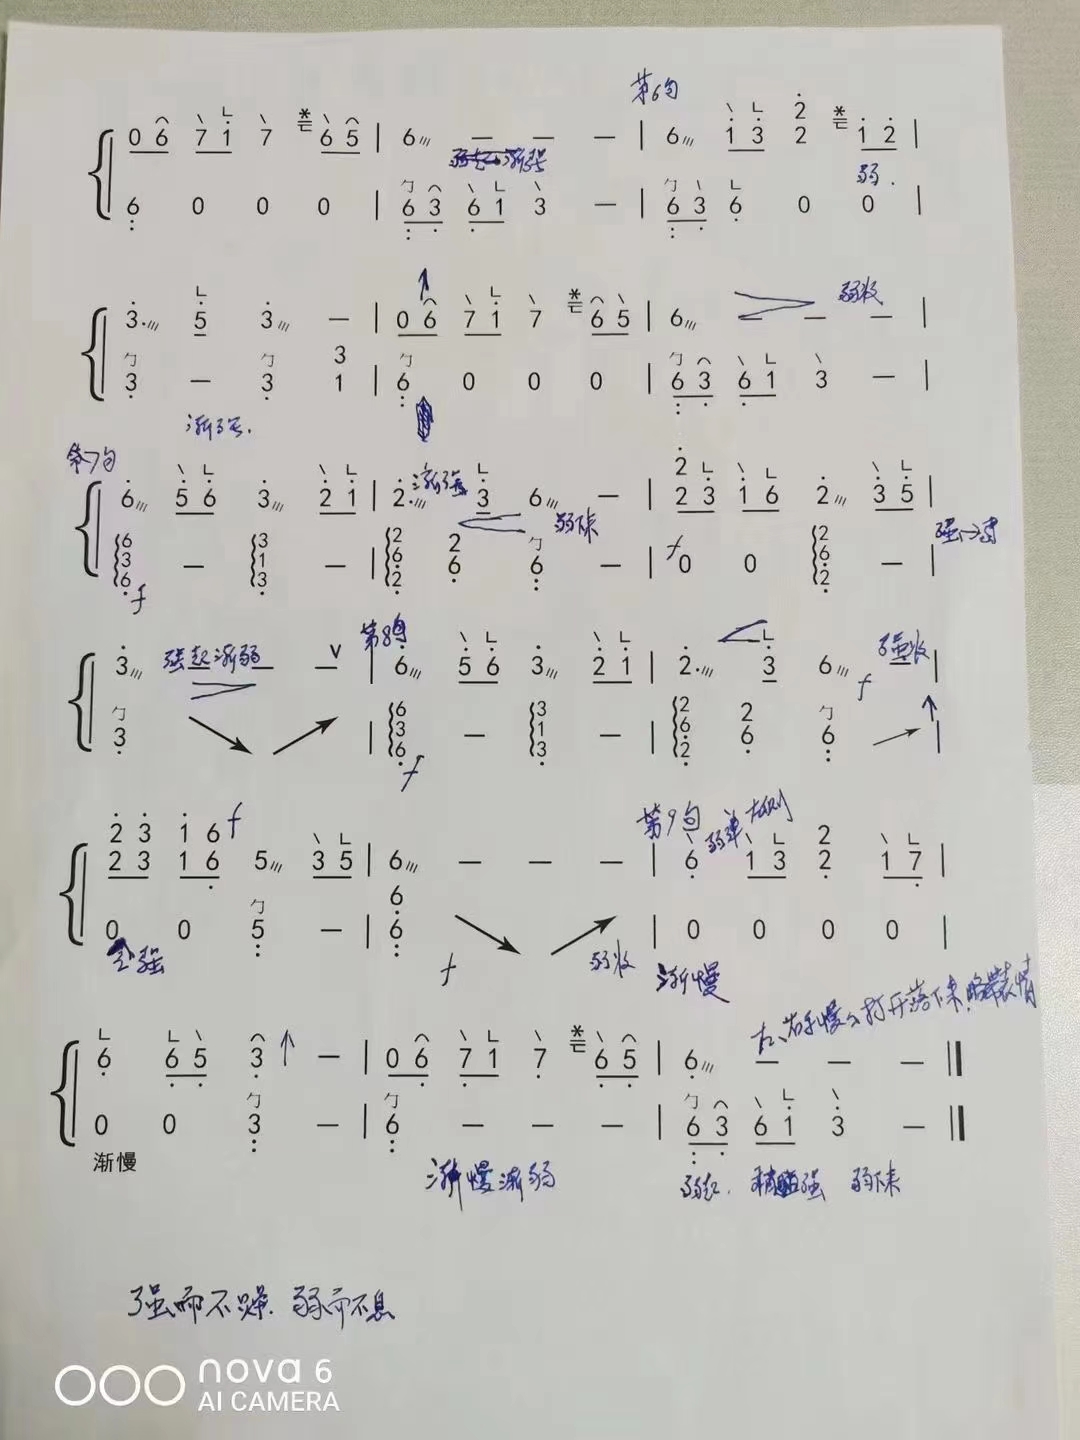 第6句
0 6 7 1 7 6 5 | 6 — — — | 6 1 3 2 2 1 2 |
渐强
弱.
6 0 0 0 | 6 3 6 1 3 — | 6 3 6 0 0 |
3. 5 3 — | 0 6 7 1 7 6 5 | 6 — — — |
弱收
3 — 3 3 1 | 6 0 0 0 | 6 3 6 1 3 — |
渐强.
第7句
6 5 6 3 2 1 | 2. 3 6 — | 2 2 3 1 6 2 3 5 |
渐强
弱下来
6 3 6 — 3 1 3 — | 2 6 2 2 6 6 — | 0 0 2 6 2 — |
f
f
第8句
3 — — — V | 6 5 6 3 2 1 | 2. 3 6 — |
强起渐弱
强收
3 | 6 3 6 — 3 1 3 — | 2 6 2 2 6 6 |
f
f
第9句
弱弹
2 3 1 6 f
2 3 1 6 5 3 5 | 6 — — — | 6 1 3 2 2 1 7 |
0 0 5 — | 6 6 | 0 0 0 0 |
强
f
弱收
渐慢
6 6 5 3 — | 0 6 7 1 7 6 5 | 6 — — —
0 0 3 — | 6 — — — | 6 3 6 1 3 —
渐慢
渐慢渐弱
弱起. 稍强 弱下来
强而不躁. 弱而不息
nova 6
AI CAMERA